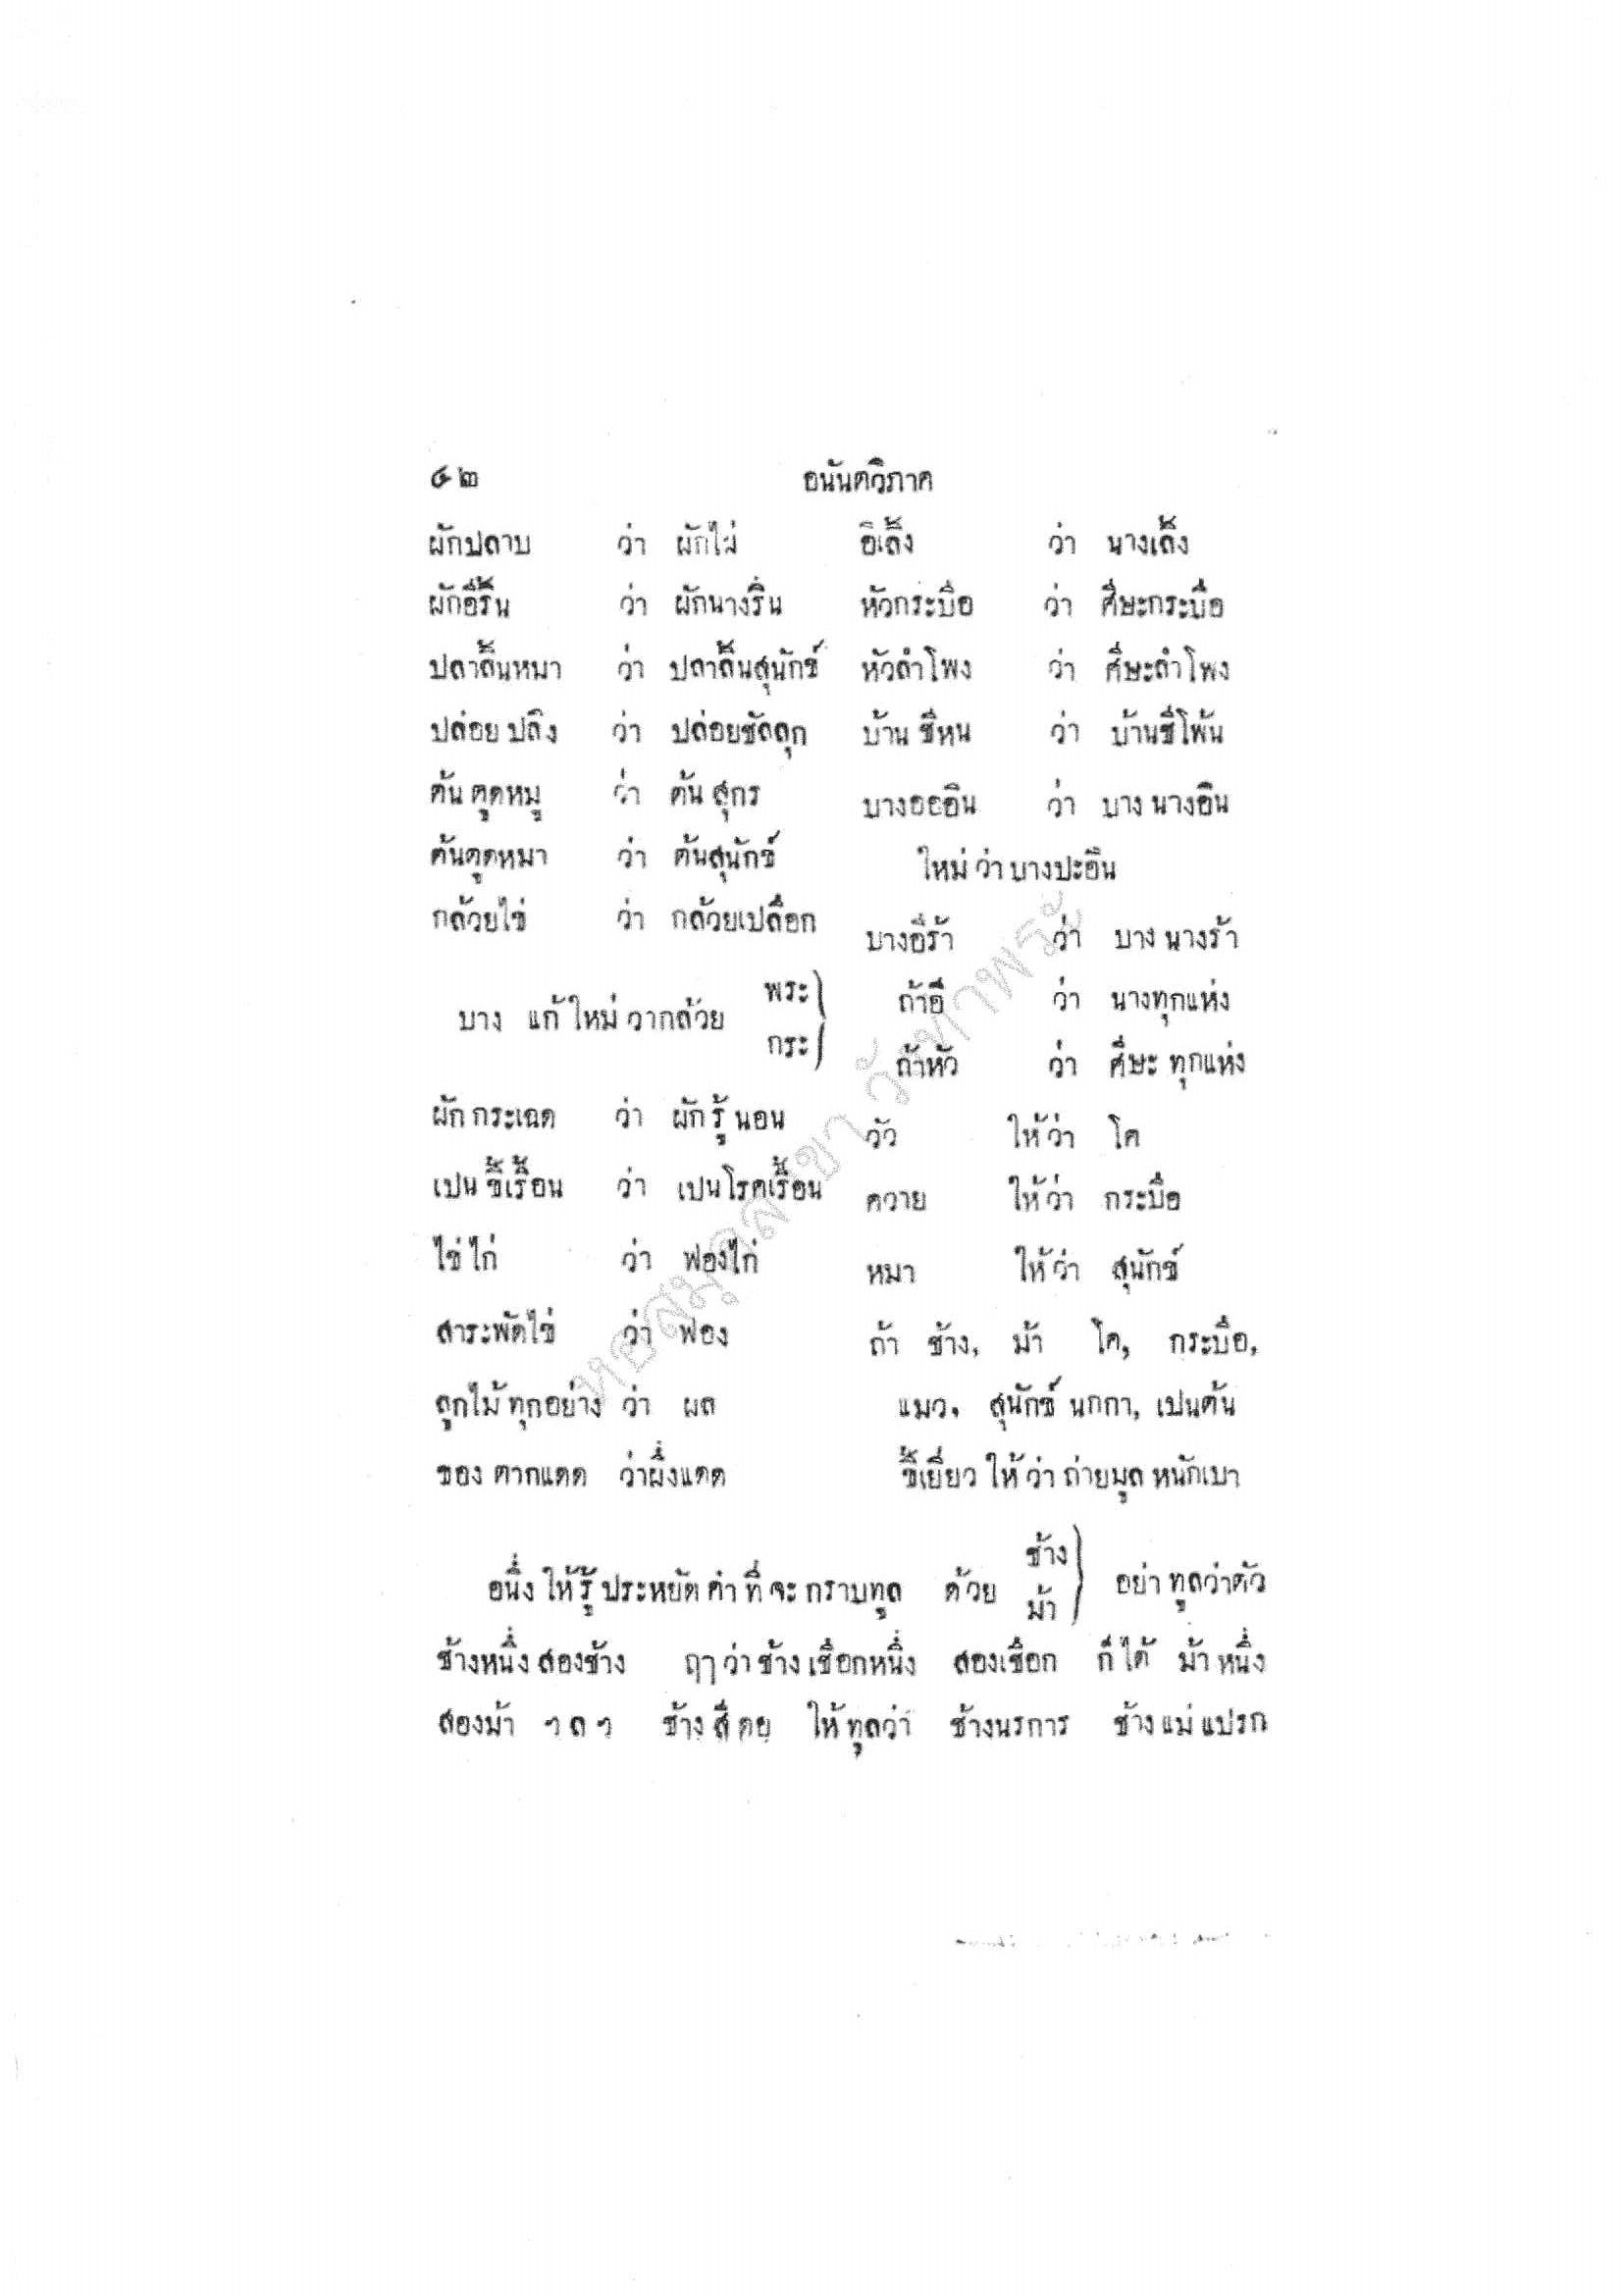 ๕๒ อนันตวิภาค
ผักปลาบ ว่า ผักไผ่
ผักอีริ้น ว่า ผักนางริ้น
ปลาลิ้นหมา ว่า ปลาลิ้นสุนักข์
ปล่อยปลิง ว่า ปล่อยชัลลุก
ต้นตูดหมู ว่า ต้นสุกร
ต้นตูดหมา ว่า ต้นสุนักข์
กล้วยไข่ ว่า กล้วยเปลือก
บาง แก้ใหม่วากล้วย พระ กระ
ผักกระเฉด ว่า ผักรู้นอน
เปนขี้เรื้อน ว่า เปนโรคเรื้อน
ไข่ไก่ ว่า ฟองไก่
สาระพัดไข่ ว่า ฟอง
ลูกไม้ทุกอย่าง ว่า ผล
ของตากแดด ว่าผึ่งแดด
อีเลิ้ง ว่า นางเลิ้ง
หัวกระบือ ว่า ศีษะกระบือ
หัวลำโพง ว่า ศีษะลำโพง
บ้านชีหน ว่า บ้านชีโพ้น
บางออิน ว่า บางนางอิน
ใหม่ว่าบางปะอิน
บางอีร้า ว่า บางนางร้า
ถ้าอี ว่า นางทุกแห่ง
ถ้าหัว ว่า ศีษะทุกแห่ง
วัว ให้ว่า โค
ควาย ให้ว่า กระบือ
หมา ให้ว่า สุนักข์
ถ้า ช้าง, ม้า โค, กระบือ,
แมว, สุนักข์ นกกา, เปนต้น
ขี้เยี่ยว ให้ว่าถ่ายมูลหนักเบา
อนึ่งให้รู้ประหยัดคำที่จะกราบทูล ด้วย ช้าง ม้า อย่าทูลว่าตัว
ช้างหนึ่งสองช้าง ฤๅว่าช้างเชือกหนึ่ง สองเชือก ก็ได้ ม้าหนึ่ง
สองม้า ฯลฯ ช้างสีดอ ให้ทูลว่า ช้างนรการ ช้างแม่แปรก
หอสมุดสาขา วังท่าพระ